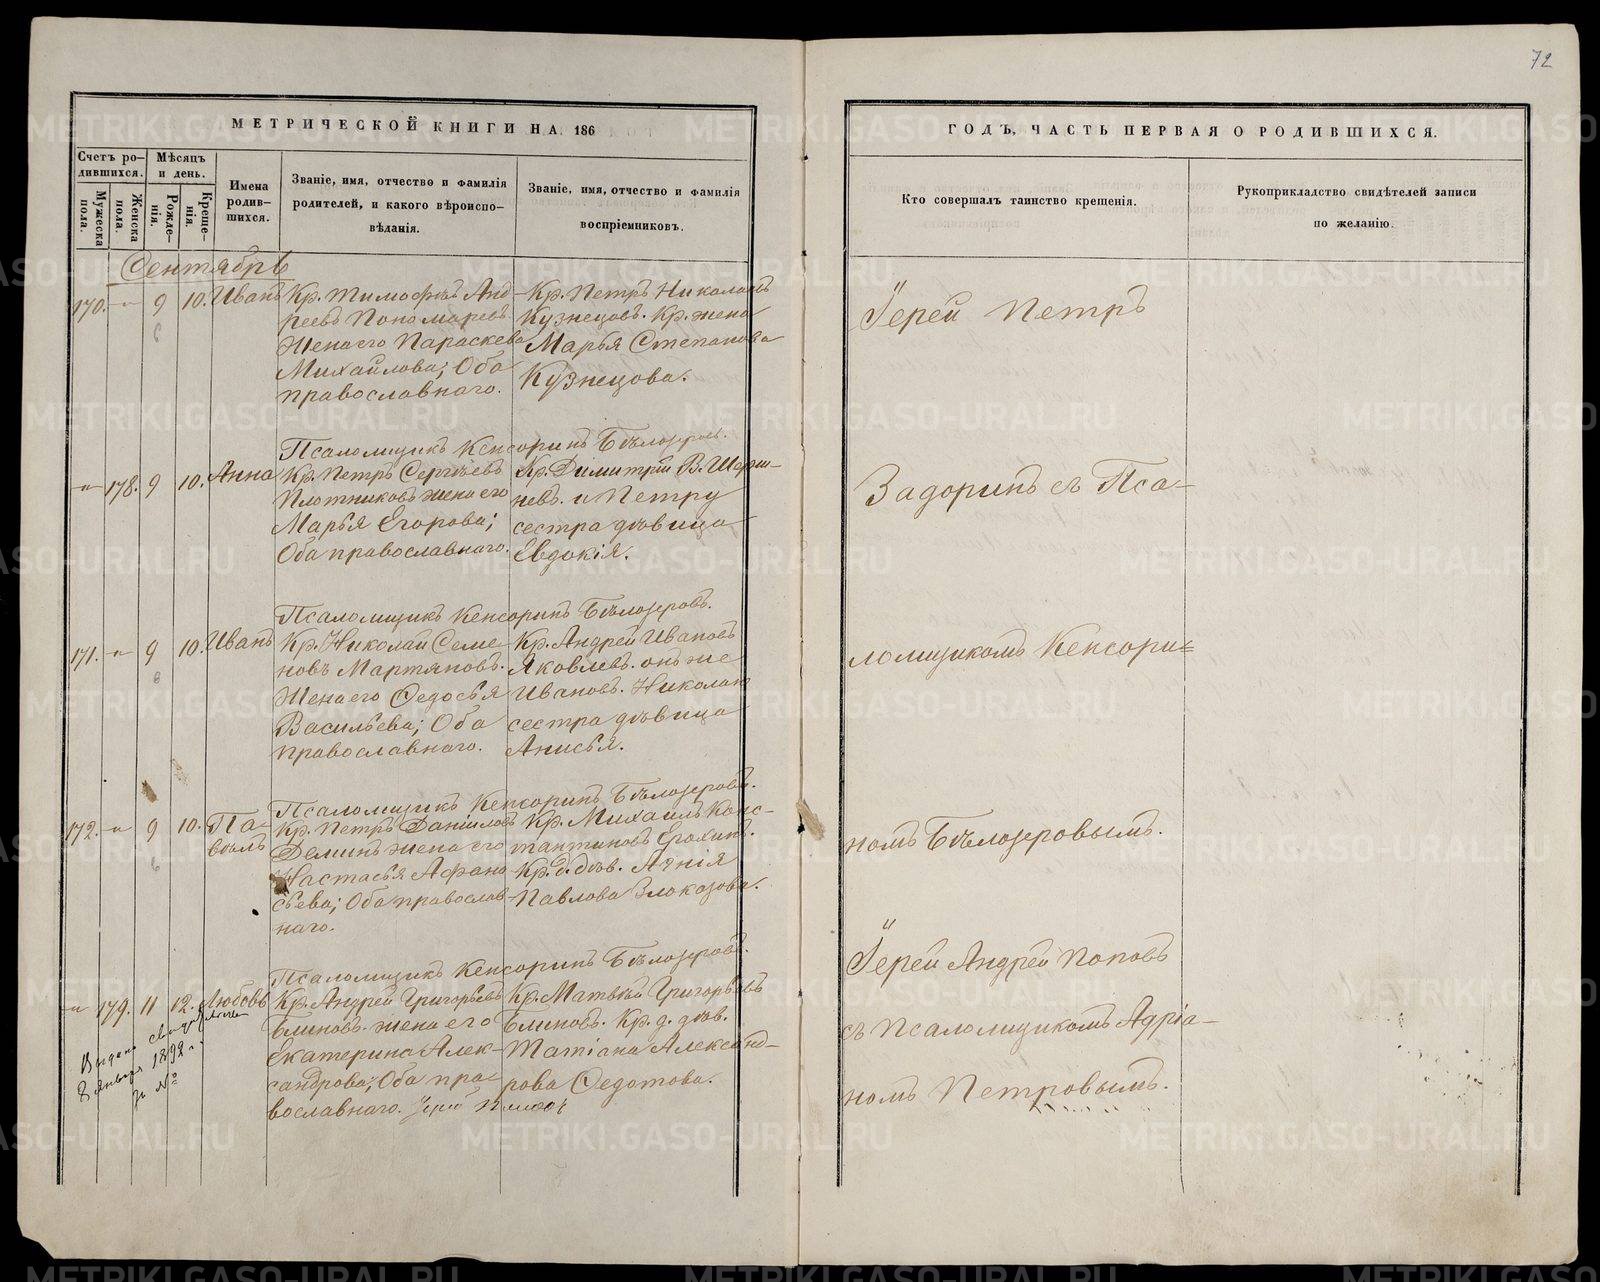 72
МЕТРИЧЕСКОЙ КНИГИ НА 186
ГОДЪ, ЧАСТЬ ПЕРВАЯ О РОДИВШИХСЯ.
Счетъ ро-
дившихся.
Мужеска пола.
Женска пола.
Мѣсяцъ и день.
Рожде-
нія.
Креще-
нія.
Имена
родив-
шихся.
Званіе, имя, отчество и фамилія
родителей, и какого вѣроиспо-
вѣданія.
Званіе, имя, отчество и фамилія
воспріемниковъ.
Кто совершалъ таинство крещенія.
Рукоприкладство свидѣтелей записи
по желанію.
Сентябрь
170. -"- 9 10. Иванъ
Кр. Тимофѣй Анд
реевъ Пономаревъ
Жена его Параскева
Михайлова; Оба
православнаго.
Кр. Петръ Николаевъ
Кузнецовъ. Кр. жена
Марья Степанова
Кузнецова.
Псаломщикъ Кенсоринъ Бѣлозеровъ.
-"- 178. 9 10. Анна
Кр. Петръ Сергѣевъ
Плотниковъ жена его
Марья Егорова;
Оба православнаго.
Кр. Димитрій В. Шерш-
невъ. и Петру
сестра дѣвица
Евдокія.
Псаломщикъ Кенсоринъ Бѣлозеровъ.
171. -"- 9 10. Иванъ
Кр. Николай Семе
новъ Мартяновъ.
Жена его Федосья
Васильева; Оба
православнаго.
Кр. Андрей Ивановъ
Яковлевъ. онъ же
Ивановъ. Николаю
сестра дѣвица
Анисья.
Псаломщикъ Кенсоринъ Бѣлозеровъ.
172. -"- 9 10. Па-
велъ
Кр. Петръ Даніиловъ
Деминъ жена его
Настасья Афана
сьева; Оба православ
наго.
Кр. Михаилъ Конс-
тантиновъ Ерохинъ.
Кр. д. дѣв. Агнія
Павлова Злоказова.
Псаломщикъ Кенсоринъ Бѣлозеровъ.
-"- 179. 11 12. Любовь
Кр. Андрей Григорьевъ
Блиновъ. жена его
Екатерина Алек-
сандрова; Оба пра-
вославнаго.
Кр. Матвѣй Григорьевъ
Блиновъ. Кр. д. дѣв.
Татіана Александ-
рова Федотова.
Выдано
8 января 1892 г.
за №
Іерей Петръ
Задоринъ съ Пса-
ломщикомъ Кенсори=
номъ Бѣлозеровымъ.
Іерей Андрей Поповъ
съ псаломщикомъ Адріа-
номъ Петровымъ.
METRIKI.GASO-URAL.RU